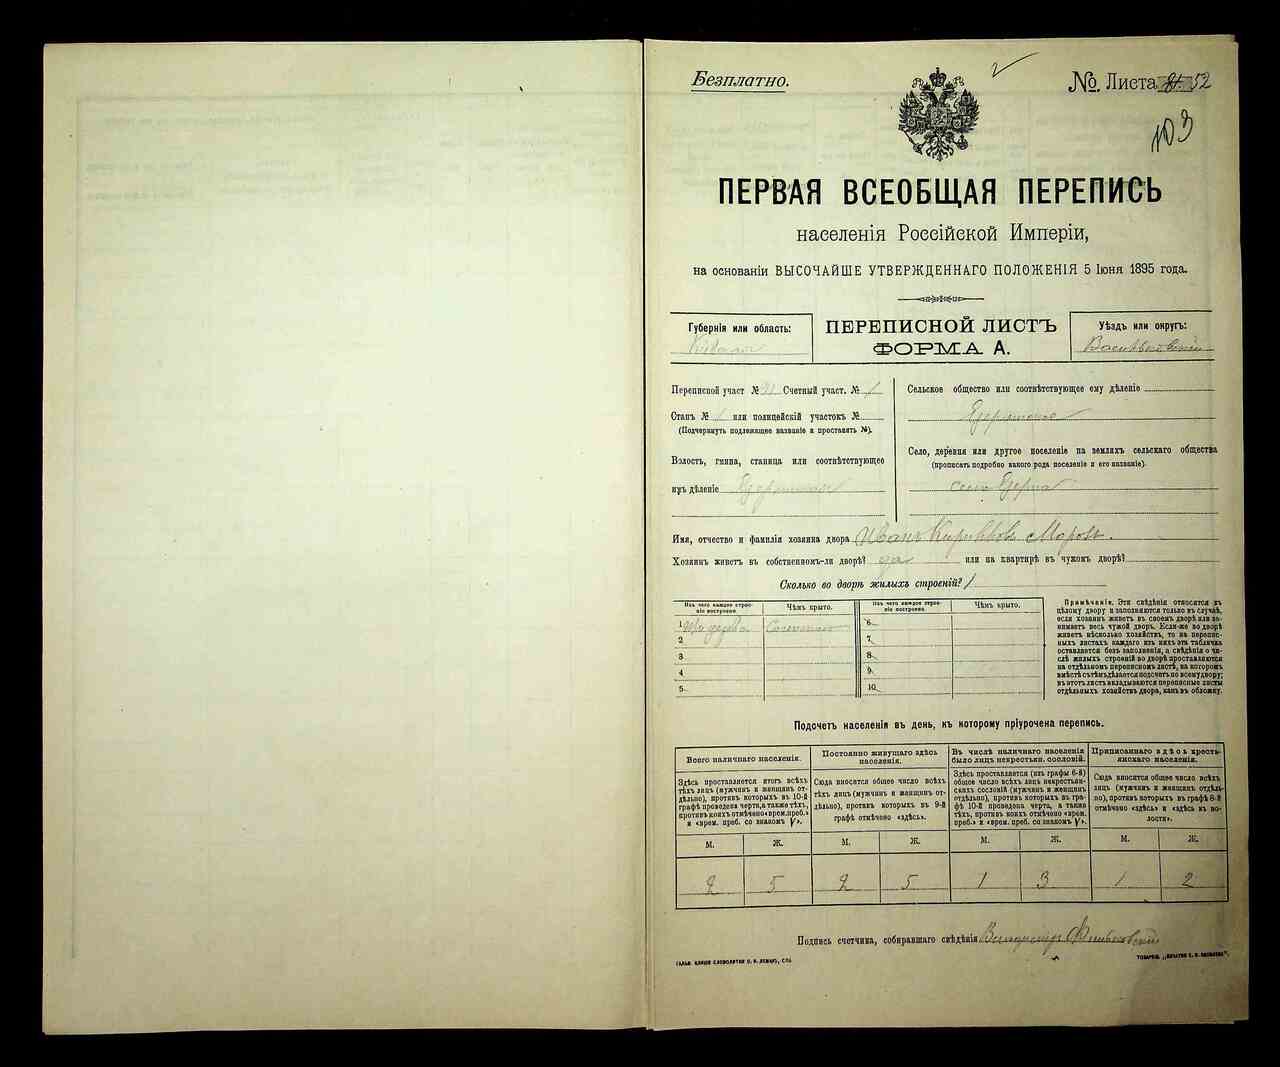 Безплатно.
№. Листа 52
103
ПЕРВАЯ ВСЕОБЩАЯ ПЕРЕПИСЬ
населенія Россійской Имперіи,
на основаніи ВЫСОЧАЙШЕ УТВЕРЖДЕННАГО ПОЛОЖЕНІЯ 5 Іюня 1895 года.
Губернія или область:
ПЕРЕПИСНОЙ ЛИСТЪ
ФОРМА А.
Уѣздъ или округъ:
Васильковскій
Переписной участ № Счетный участ. № 1
Станъ № 1 или полицейскій участокъ №
(Подчеркнуть подлежащее названіе и проставить №).
Волость, гмина, станица или соотвѣтствующее
имъ дѣленіе
Сельское общество или соотвѣтствующее ему дѣленіе
Село, деревня или другое поселеніе на земляхъ сельскаго общества
(прописать подробно какого рода поселеніе и его названіе).
село
Имя, отчество и фамилія хозяина двора Иванъ
Хозяинъ живетъ въ собственномъ-ли дворѣ? да или на квартирѣ въ чужомъ дворѣ?
Сколько во дворѣ жилыхъ строеній? 1
Изъ чего каждое строеніе построено.
Чѣмъ крыто.
1 Изъ дерева Соломою
2
3
4
5
Изъ чего каждое строеніе построено.
Чѣмъ крыто.
6
7
8
9
10
Примѣчаніе. Эти свѣдѣнія относятся къ
цѣлому двору и заполняются только въ случаѣ,
если хозяинъ живетъ въ своемъ дворѣ или занимаетъ
весь чужой дворъ. Если-же во дворѣ
живетъ нѣсколько хозяйствъ, то на переписныхъ
листахъ каждаго изъ нихъ эта табличка
оставляется безъ заполненія, а свѣдѣнія о числѣ
жилыхъ строеній во дворѣ проставляются
на отдѣльномъ переписномъ листѣ, на которомъ
вмѣстѣ съ тѣмъ дѣлается подсчетъ по всему двору;
въ этотъ листъ вкладываются переписные листы
отдѣльныхъ хозяйствъ двора, какъ въ обложку.
Подсчетъ населенія въ день, къ которому пріурочена перепись.
Всего наличнаго населенія.
Здѣсь проставляется итогъ всѣхъ
тѣхъ лицъ (мужчинъ и женщинъ отдѣльно),
противъ которыхъ въ 10-й
графѣ проведена черта, а также тѣхъ,
противъ коихъ отмѣчено «врем. преб.»
и «врем. преб. со знакомъ V».
М. Ж.
2 5
Постоянно живущаго здѣсь
населенія.
Сюда вносится общее число всѣхъ
тѣхъ лицъ (мужчинъ и женщинъ отдѣльно),
противъ которыхъ въ 9-й
графѣ отмѣчено «здѣсь».
М. Ж.
2 5
Въ числѣ наличнаго населенія
было лицъ некрестьян. сословій.
Здѣсь проставляется (изъ графы 6-й)
общее число всѣхъ лицъ некрестьянскихъ
сословій (мужчинъ и женщинъ
отдѣльно), противъ которыхъ въ графѣ
10-й проведена черта, а также
тѣхъ, противъ коихъ отмѣчено «врем.
преб.» и «врем. преб. со знакомъ V».
М. Ж.
1 3
Приписаннаго здѣсь крестьянскаго
населенія.
Сюда вносится общее число всѣхъ
лицъ (мужчинъ и женщинъ отдѣльно),
противъ которыхъ въ графѣ 8-й
отмѣчено «здѣсь» и «здѣсь въ волости».
М. Ж.
1 2
Подпись счетчика, собиравшаго свѣдѣнія